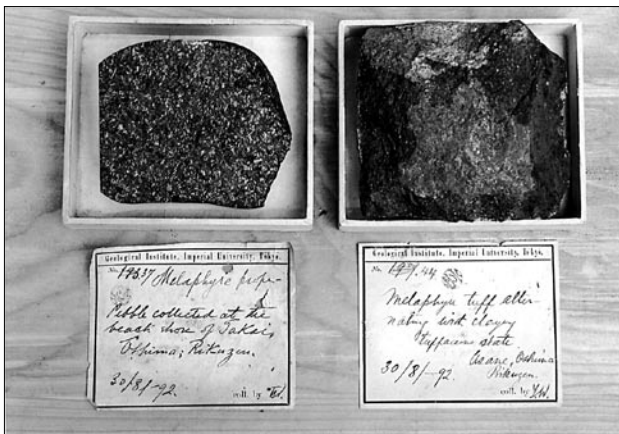 Geological Institute, Imperial University, Tōkyō.
No. 19637 Melaphyre
Pebble collected at the
beach shore of Takai,
Oshima, Rikuzen.
30/8/–92.
coll. by
Geological Institute, Imperial University, Tōkyō.
No. 44
Melaphyre tuff alter-
nating with clayey
tuffaceous slate
Asane, Oshima
Rikuzen.
30/8/–92.
coll. by